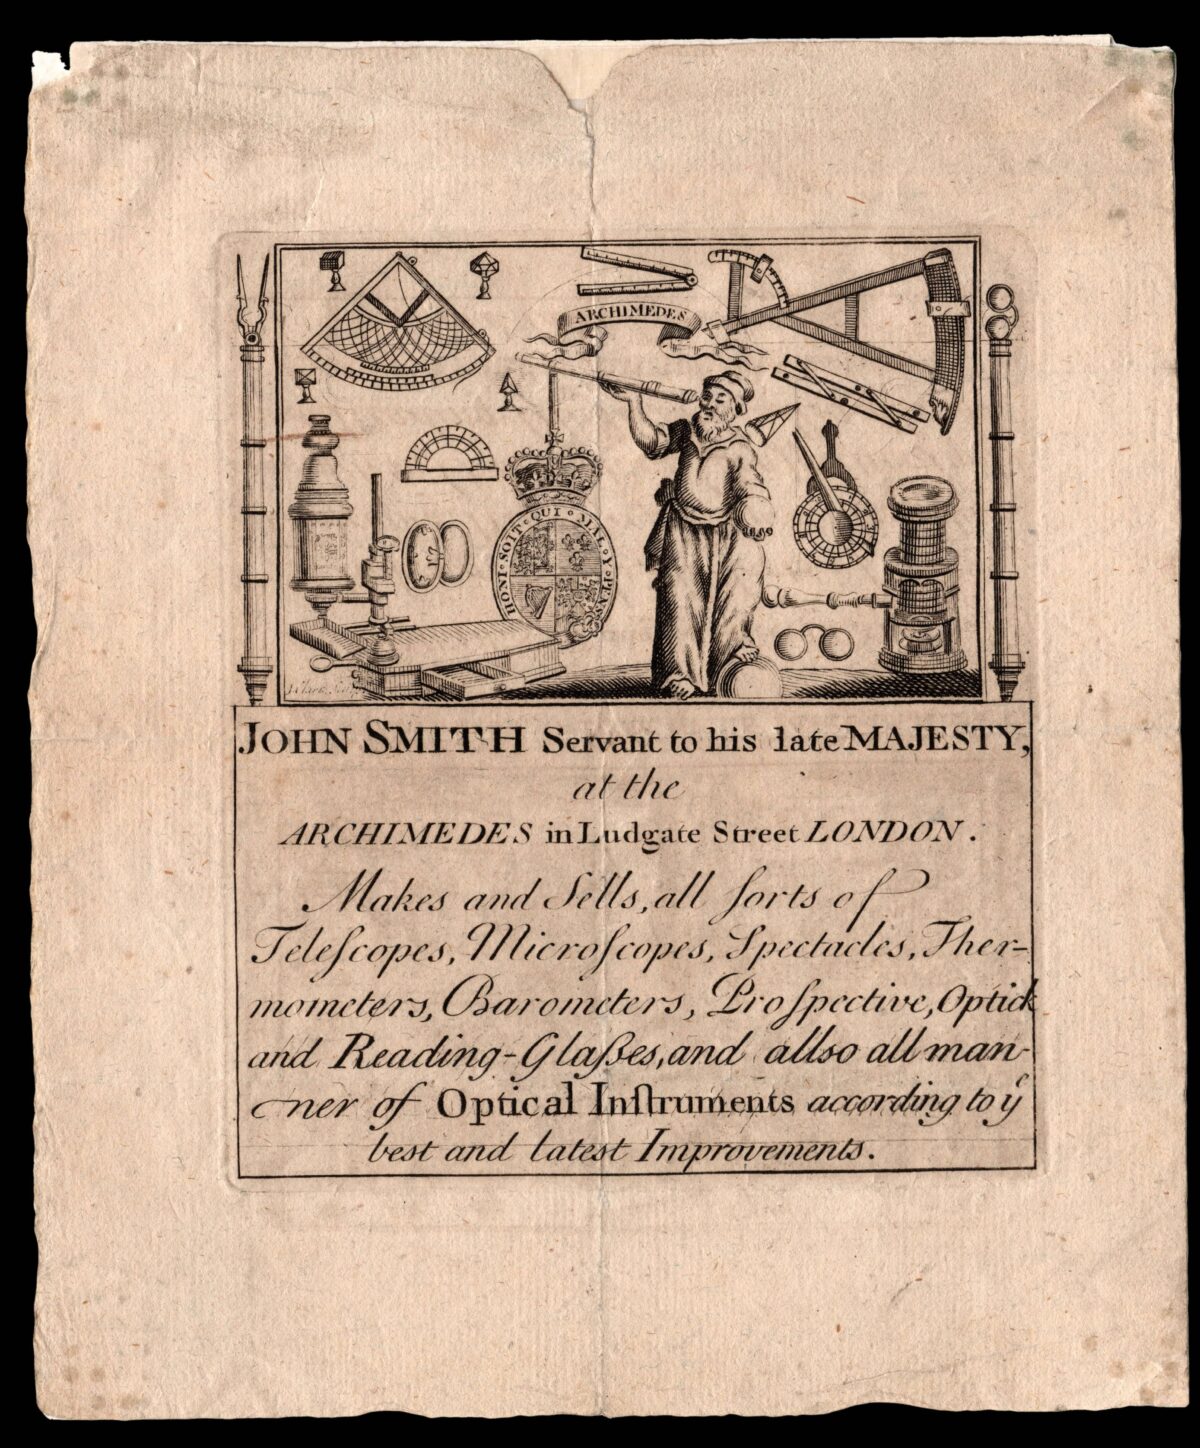 ARCHIMEDES
HONI · SOIT · QUI · MAL · Y · PENS
JOHN SMITH Servant to his late MAJESTY,
at the
ARCHIMEDES in Ludgate Street LONDON.
Makes and Sells, all ſorts of
Teleſcopes, Microſcopes, Spectacles, Ther-
mometers, Barometers, Proſpective, Optick
and Reading-Glaſses, and allso all man-
ner of Optical Inſtruments according to yͤ
best and latest Improvements.